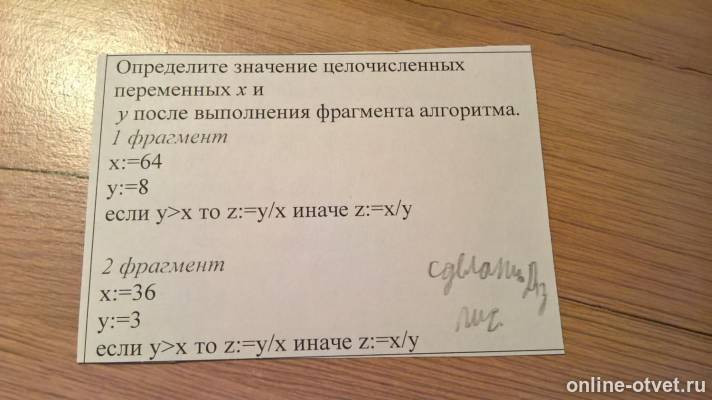 Определите значение целочисленных
переменных x и
y после выполнения фрагмента алгоритма.
1 фрагмент
x:=64
y:=8
если y>x то z:=y/x иначе z:=x/y
2 фрагмент
x:=36
y:=3
если y>x то z:=y/x иначе z:=x/y
online-otvet.ru